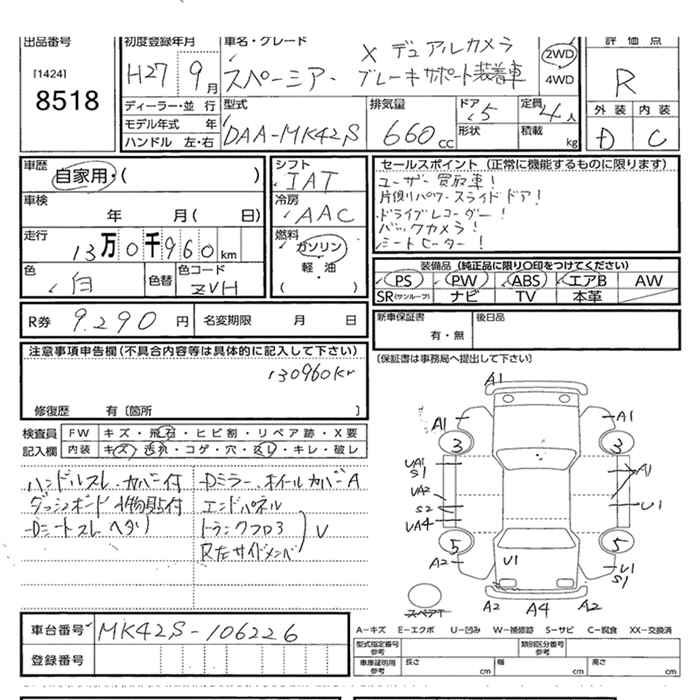 出品番号
[1424]
8518
初度登録年月
H27 9月
車名・グレード
X デュアルカメラ
スペーシア・ブレーキサポート装着車
2WD
4WD
評価点
R
外装 内装
D C
ディーラー・並 行
モデル年式 年
ハンドル 左・右
型式
DAA-MK42S
排気量
660cc
ドア 5
形状
定員 4人
積載 kg
車歴
自家用・( )
車検
年 月( 日)
走行
13万0千960km
色
白
色替
色コード
ZVH
シフト
IAT
冷房
AAC
燃料
ガソリン
軽・油
( )
セールスポイント (正常に機能するものに限ります)
ユーザー買取車!
片側リパワースライドドア!
ドライブレコーダー!
バックカメラ!
シートヒーター!
装備品 (純正品に限り〇印をつけてください)
PS PW ABS エアB AW
SR(サンルーフ) ナビ TV 本革
R券 9.290円 名変期限 月 日
新車保証書
有・無
後日品
(保証書は事務局へ提出して下さい)
注意事項申告欄(不具合内容等は具体的に記入して下さい)
130960km
修復歴 有〔箇所 〕
検査員
記入欄
FW キズ・飛石・ヒビ割・リペア跡・X要
内装 キズ・汚れ・コゲ・穴・スレ・キレ・破レ
ハンドルスレ、カバー付
ダッシュボード小物貼付
-Dシートスレヘタリ
-Dミラー、ホイールカバーA
エンドパネル
トランクフロア
R左サイドメンバ
V
A1
A1 A1
3 3
UA1
S1
A1
UA2
S2
UA4
U1
5 5
A2
U1
U1
S1
スペアT
A2 A4 A2
A-キズ E-エクボ U-凹み W-補修跡 S-サビ C-腐食 XX-交換済
車台番号 MK42S-106226
登録番号
型式指定番号
参考
類別区分番号
参考
車庫証明用
参考
長さ cm 幅 cm 高さ cm